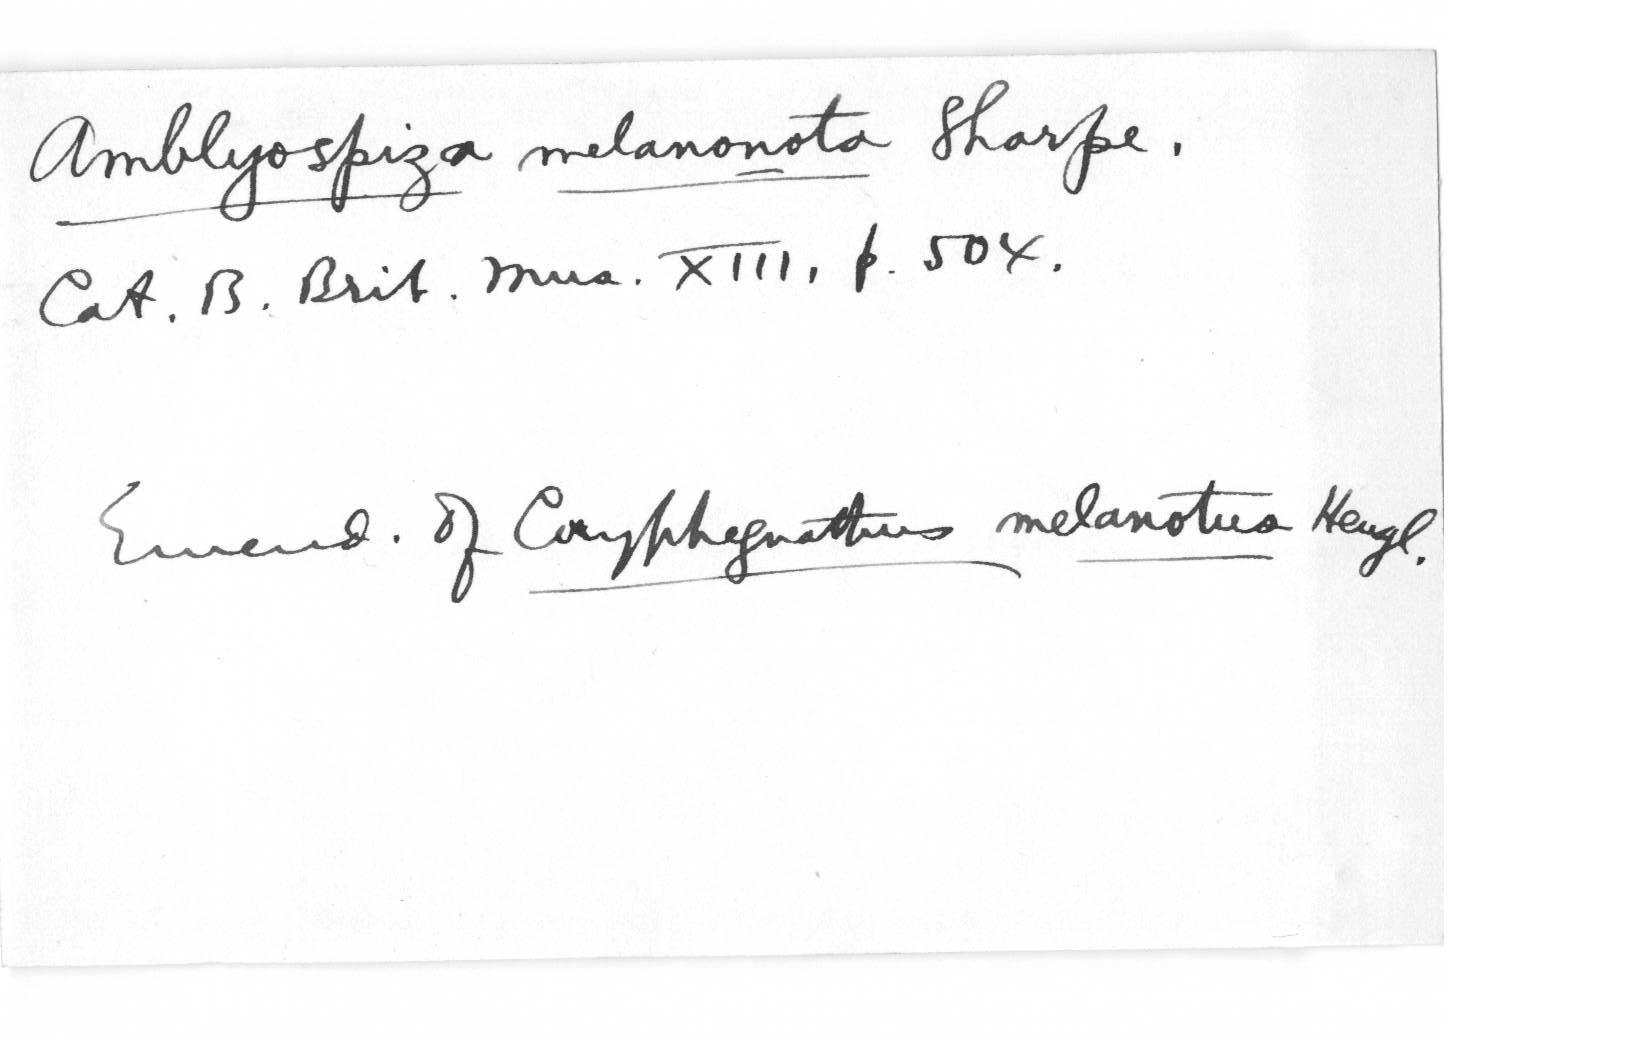 Amblyospiza melanonota Sharpe.
Cat. B. Brit. Mus. XIII, p. 504.
Emend. of Coryphegnathus melanotus Heugl.